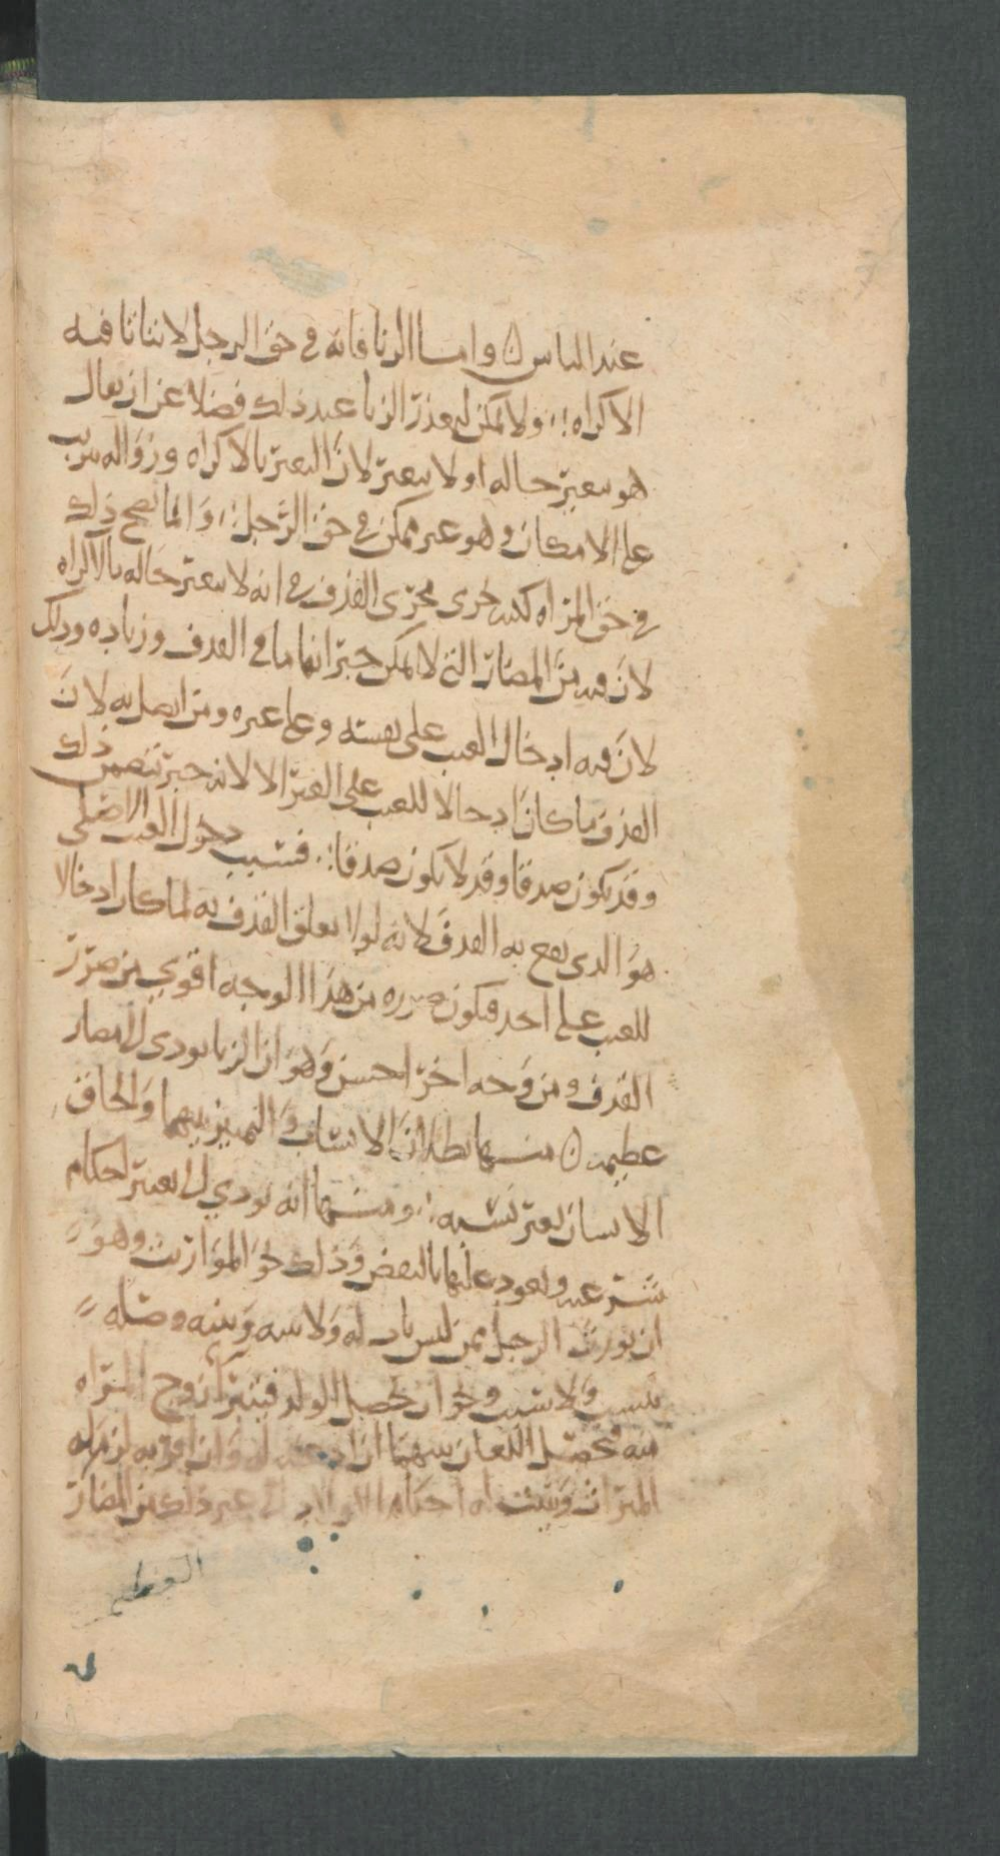 عند الناس ۝ واما الزنا فانه في حق الرجل لا يتاتا فيه
الاكراه ولا يمكن تعذر الزنا عند ذلك فضلا عن ان يقال
هو يتغير حاله او لا يتغير لان التغير بالاكراه وزواله يترتب
على الامكان وهو غير ممكن في حق الرجل وانما يصح ذلك
في حق المراه لكنه جرى مجرى القذف في انه لا يتغير حاله بالاكراه
لان فيه من المضار التي لا يمكن جبرانها ما في القذف وزياده وذلك
لان فيه ادخال العيب على نفسه وعلى غيره ومن اتصل به لان
القذف ما كان ادخالا للعيب على الغير الا لانه خبر تتضمن ذلك
وقد يكون صدقا وقد لا يكون صدقا فسبب دخول العيب الاصلي
هو الذي يقع به القذف لانه لولا تعلق القذف به لما كان ادخالا
للعيب على احد فيكون ضرره من هذا الوجه اقوى من ضرر
القذف ومن وجه اخر احسن وهو ان الزنا يودي الى مضار
عظيمه ۝ منها بطلان الانساب والتمييز بينها والحاق
الانسان بغير نسبه ومنها انه يودي الى تغير احكام
شرعيه ويعود عليها بالنقض وذلك نحو الموارثت وهو
ان يورث الرجل من ليس باب له ولا بينه وبينه وصله
بنسب ولا سبب ونحو ان يحصل الولد فيتبرا زوج المراه
منه فيحصل اللعان بينهما ان اد له وان اقر به لزم له
الميراث وتثبت له احكام الاولاد الى غير ذلك من المضار
العظيمه